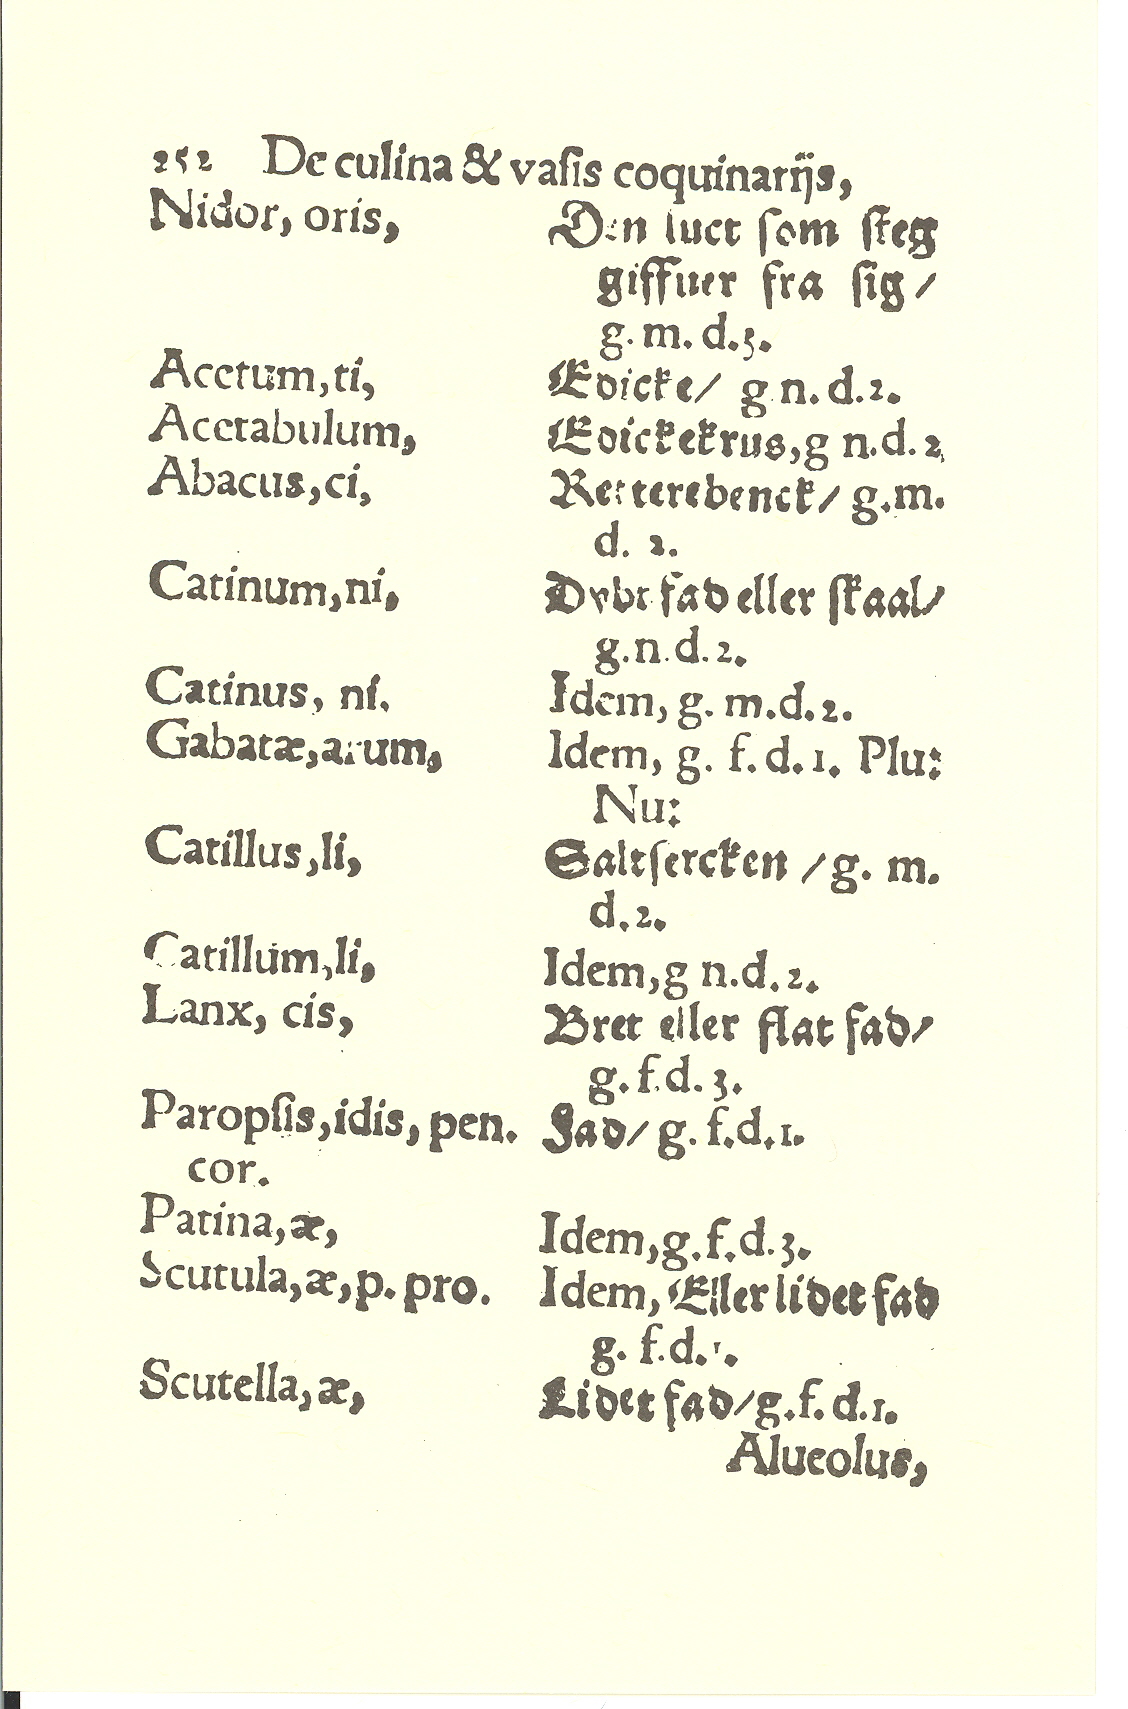 252 De culina & vaſis coquinarijs,
Nidor, oris, Den luct ſom ſteg
giffuer fra ſig /
g. m. d. 3.
Acetum, ti, Edicke / g n. d. 2.
Acetabulum, Edickekrus, g n. d. 2,
Abacus, ci, Retterebenck / g. m.
d. 2.
Catinum, ni, Dybt fad eller ſkaal /
g. n. d. 2.
Catinus, ni. Idem, g. m. d. 2.
Gabatæ, arum, Idem, g. f. d. 1. Plu:
Nu:
Catillus, li, Saltſercken / g. m.
d. 2.
Catillum, li, Idem, g n. d. 2.
Lanx, cis, Bret eller flat fad /
g. f. d. 3.
Paropſis, idis, pen. Fad / g. f. d. 1.
cor.
Patina, æ, Idem, g. f. d. 3.
Scutula, æ, p. pro. Idem, Eller lidet fad
g. f. d. 1.
Scutella, æ, Lidet fad / g. f. d. 1.
Alueolus,